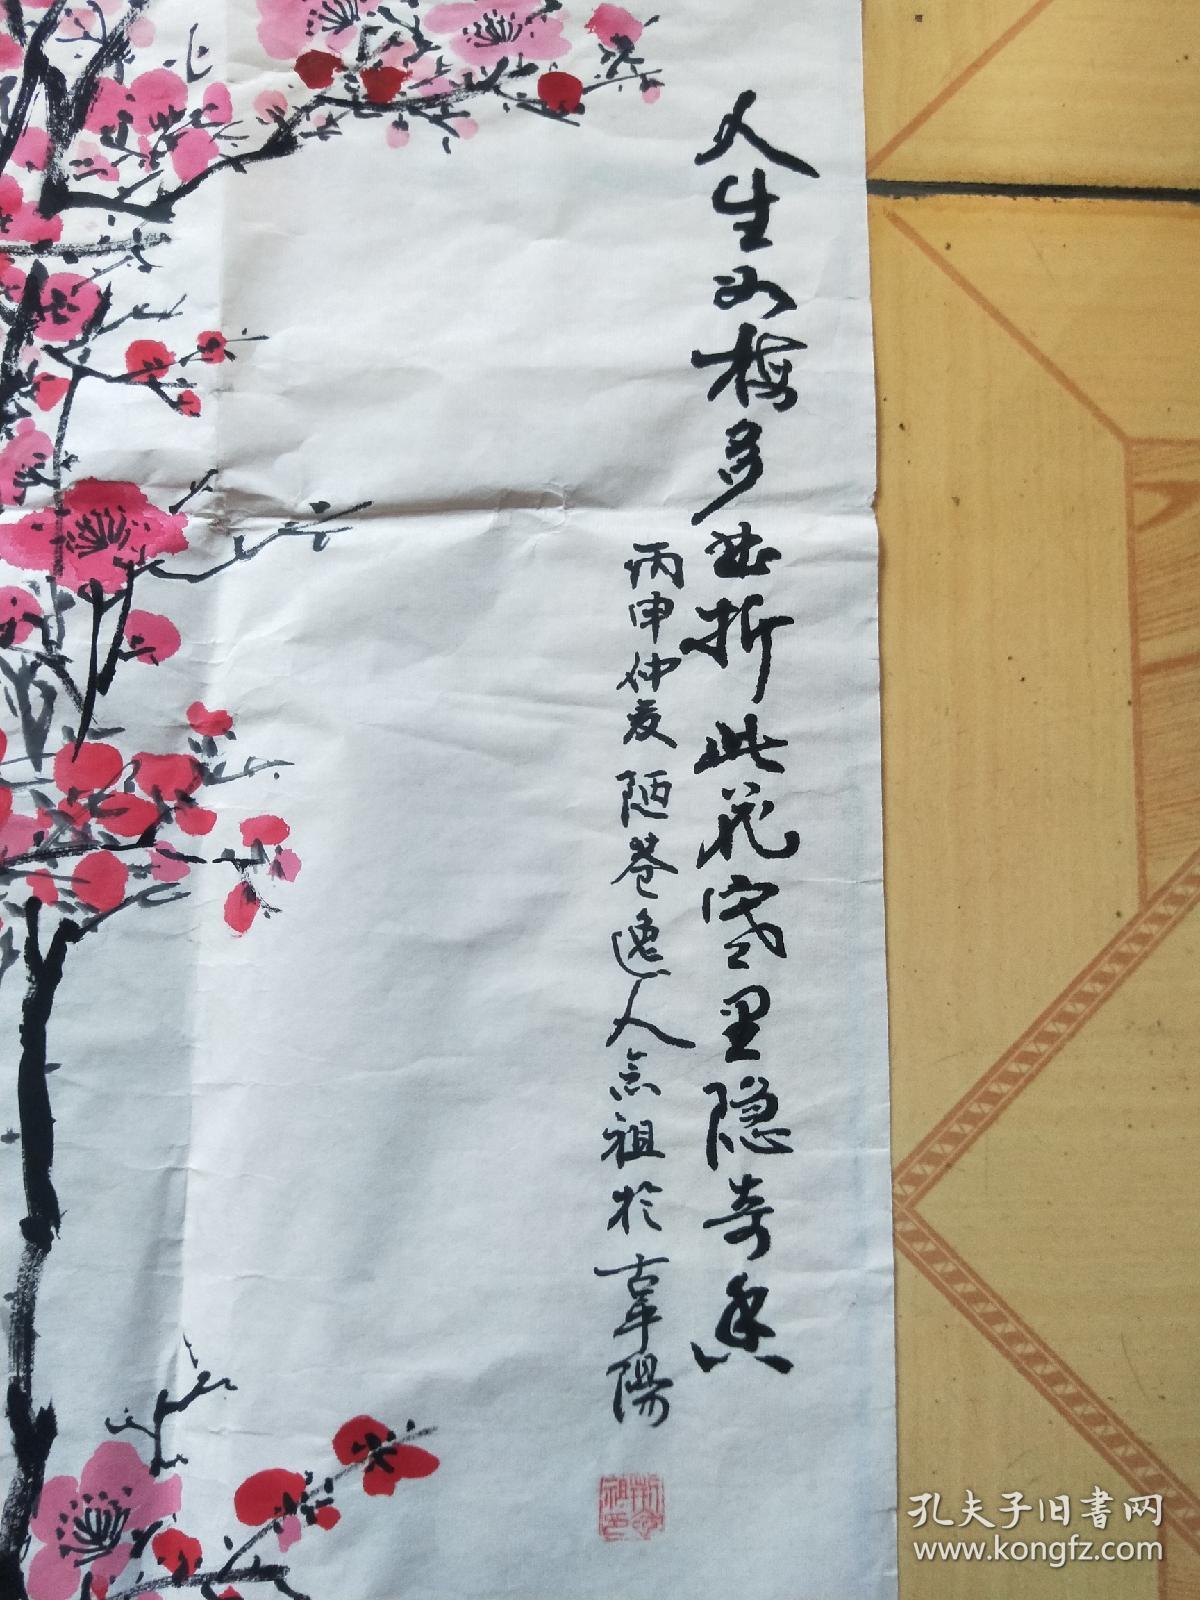 人生如梅多曲折此花寒里隐奇香
丙申仲夏陋巷逸人念祖於古莘阳
孔夫子旧书网
www.kongfz.com